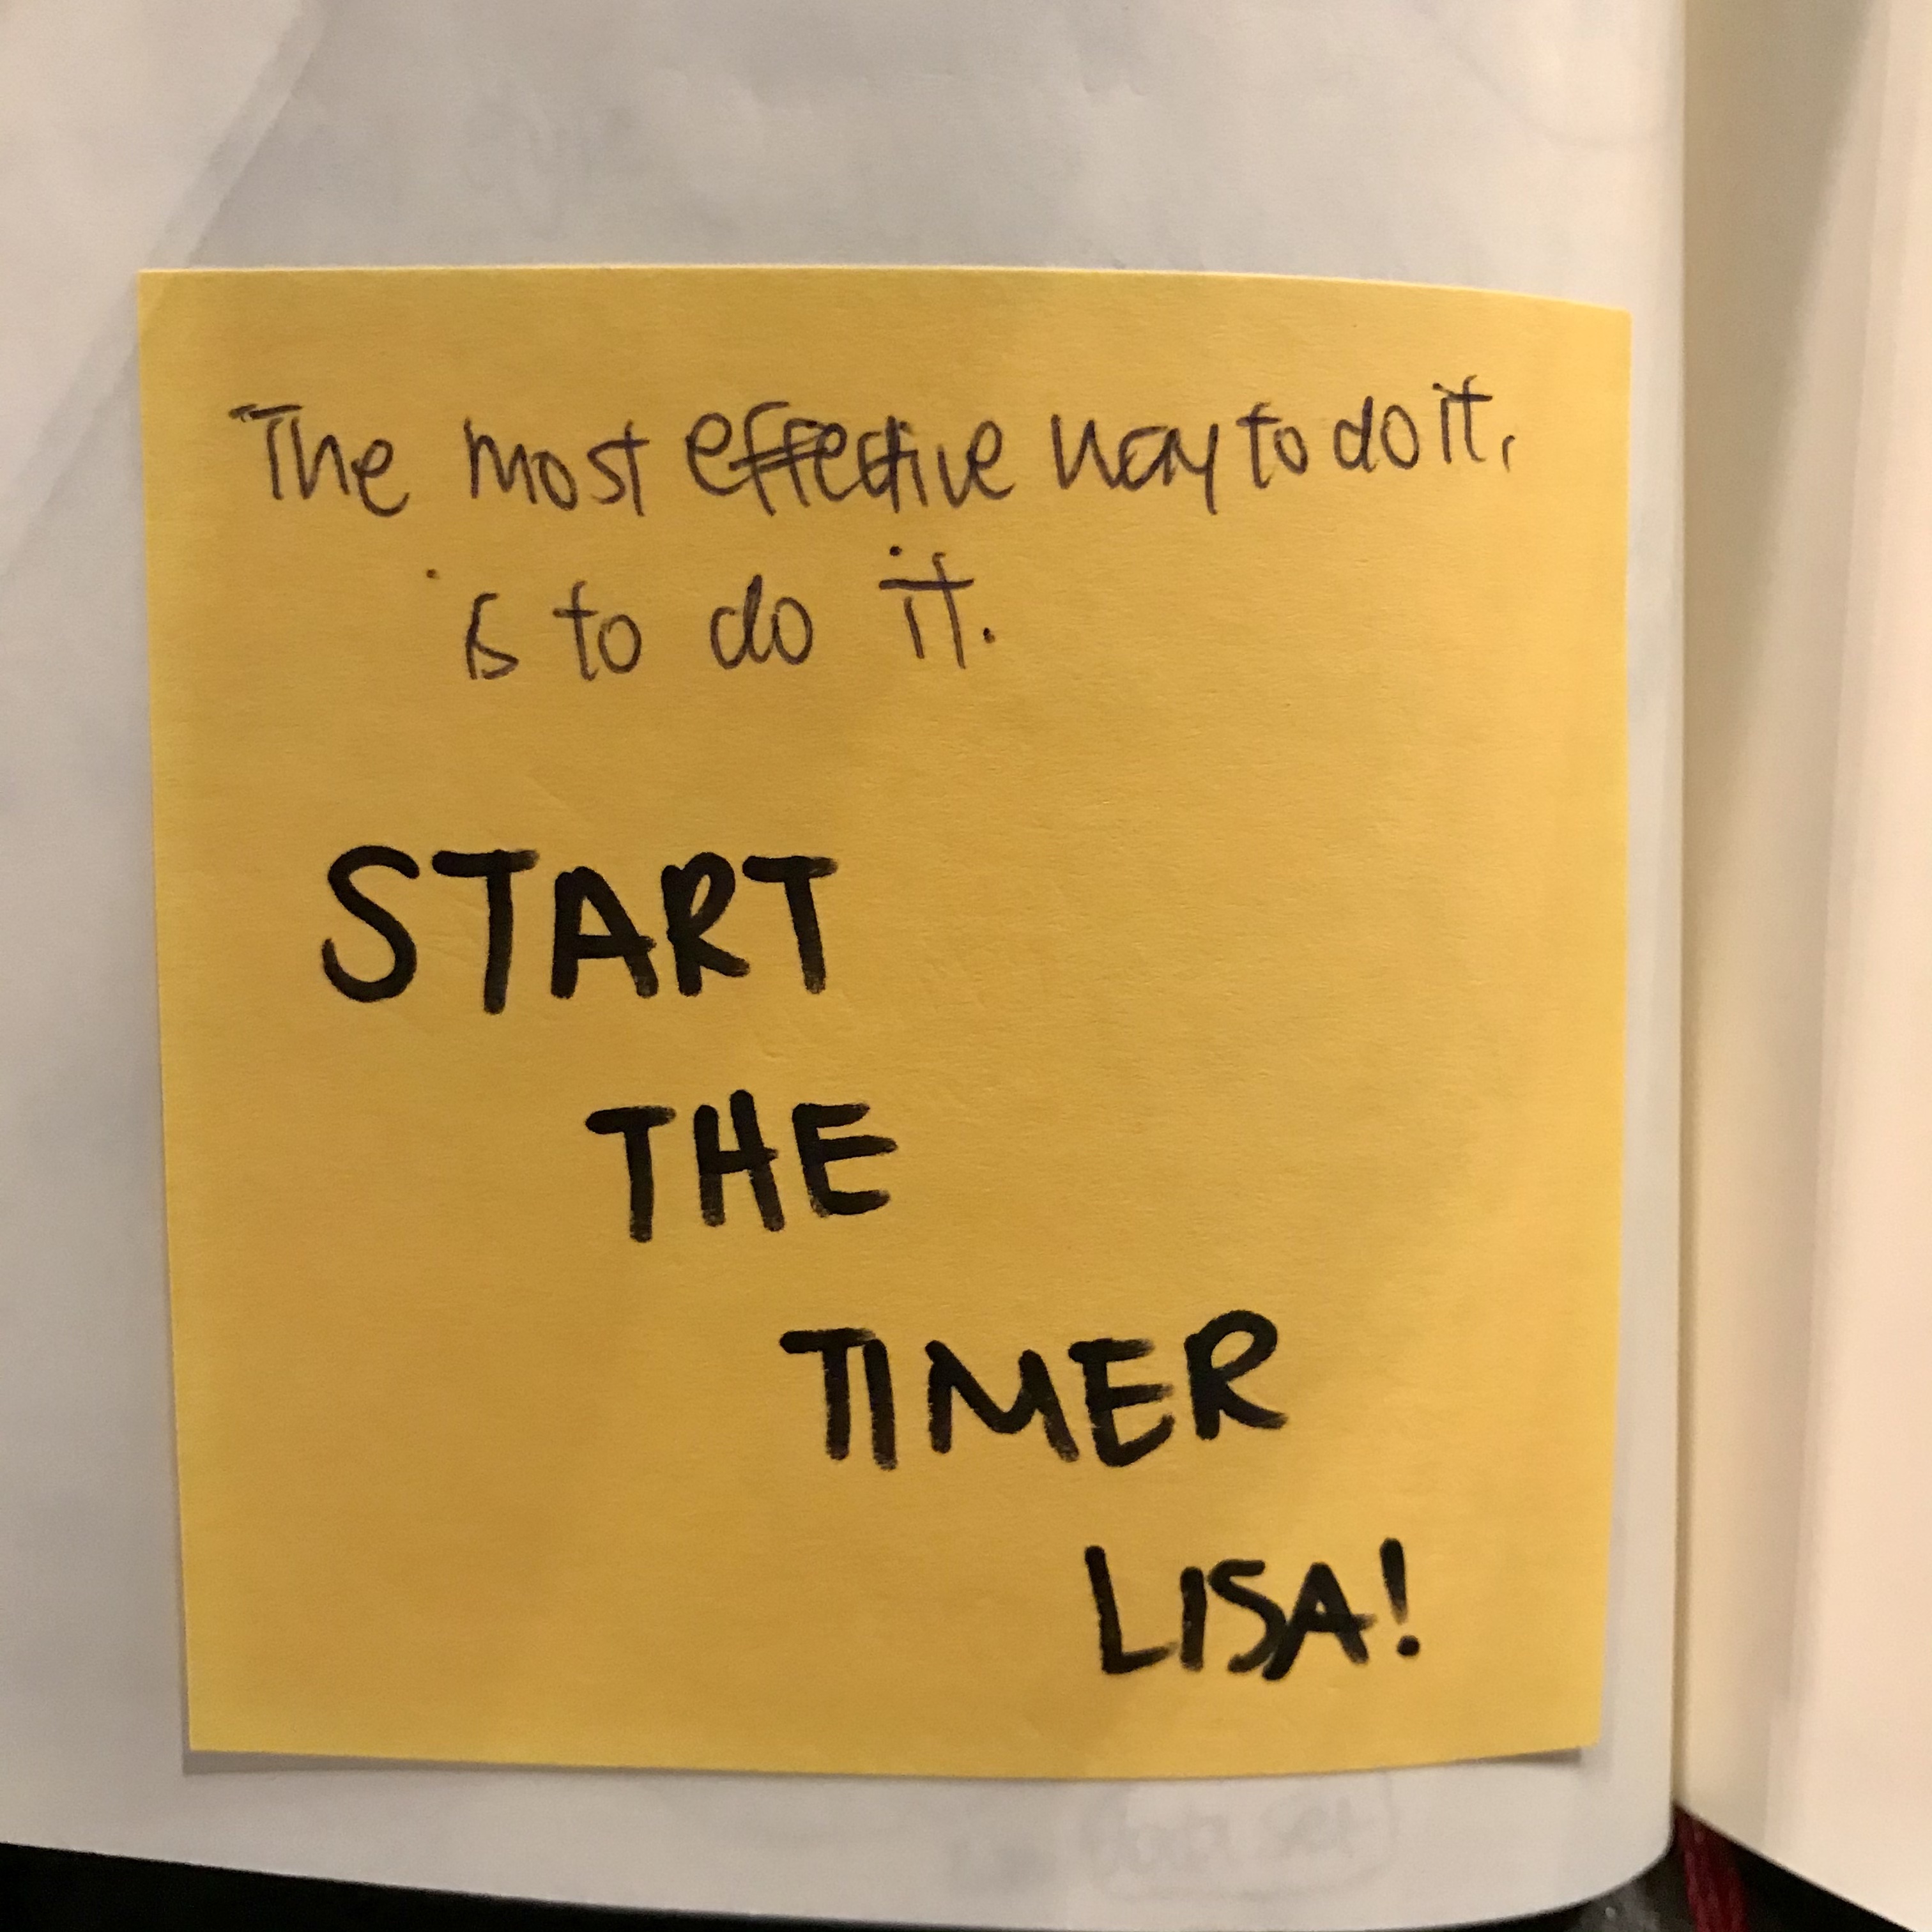 The most effective way to do it,
is to do it.
START
THE
TIMER
LISA!